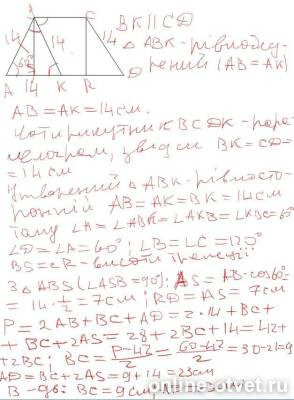 B
C
14
14
14
60°
A 14 K R D
BK || CD
△ ABK - рівнобед-
рений (AB = AK)
AB = AK = 14 см.
Чотирикутник BCDK - пара-
лелограм, звідси BK = CD =
= 14 см
Утворений △ ABK - рівносто-
ронній AB = AK = BK = 14 см
тому ∠A = ∠ABK = ∠AKB = ∠KBC = 60°
∠D = ∠A = 60°; ∠B = ∠C = 120°
BS = CR - висоти трапеції
З △ ABS (∠ASB = 90°): AS = AB·cos60° =
= 14·1/2 = 7 см; RD = AS = 7 см
P = 2AB + BC + AD = 2·14 + BC +
+ BC + 2AS = 28 + 2BC + 14 = 42 +
+ 2BC; BC = (P-42)/2 = (60-42)/2 = 30-21 = 9
AD = BC + 2AS = 9 + 14 = 23 см
В-дь: BC = 9 см,
onlineotvet.ru